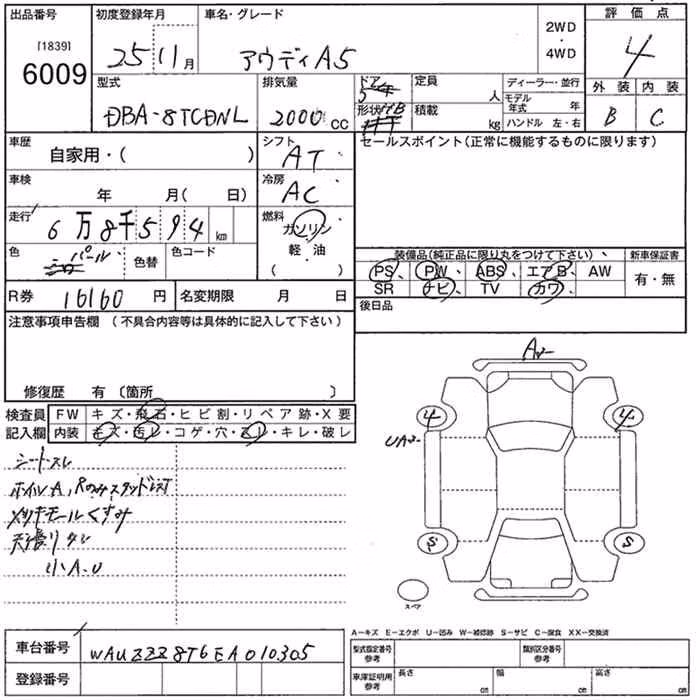 出品番号
[1839]
6009
初度登録年月
25 11月
車名・グレード
アウディA5
2WD
・
4WD
評価点
4
外装 内装
B C
型式
DBA-8TCDNL
排気量
2000 CC
ドア
5
形状 HB
定員
人
積載
kg
ディーラー・並行
モデル年式 年
ハンドル 左・右
車歴
自家用・( )
シフト
AT
セールスポイント(正常に機能するものに限ります)
車検
年 月( 日)
冷房
AC
走行
6万8千594km
燃料
ガソリン
軽・油
( )
色
パール
色替
色コード
装備品(純品に限り丸をつけて下さい)、
新車保証書
PS、PW、ABS、エアB、AW
有・無
SR ナビ、TV カワ
R券 16160円
名変期限 月 日
後日品
注意事項申告欄(不具合内容等は具体的に記入して下さい)
修復歴 有〔箇所 〕
検査員
記入欄
FW キズ・飛石・ヒビ割・リペア跡・X要
内装 キズ・汚レ・コゲ・穴・スレ・キレ・破レ
シートスレ
ホイルA,Rのみスタッドレス
メッキモールくすみ
天張り
小A.U
A
UA
4
4
S
S
スペア
A-キズ E-エクボ U-凹み W-補修跡 S-サビ C-腐食 XX-交換済
車台番号
WAUZZZ8T6EA010305
登録番号
型式指定番号
参考
類別区分番号
参考
車庫証明用
参考
長さ cm
幅 cm
高さ cm